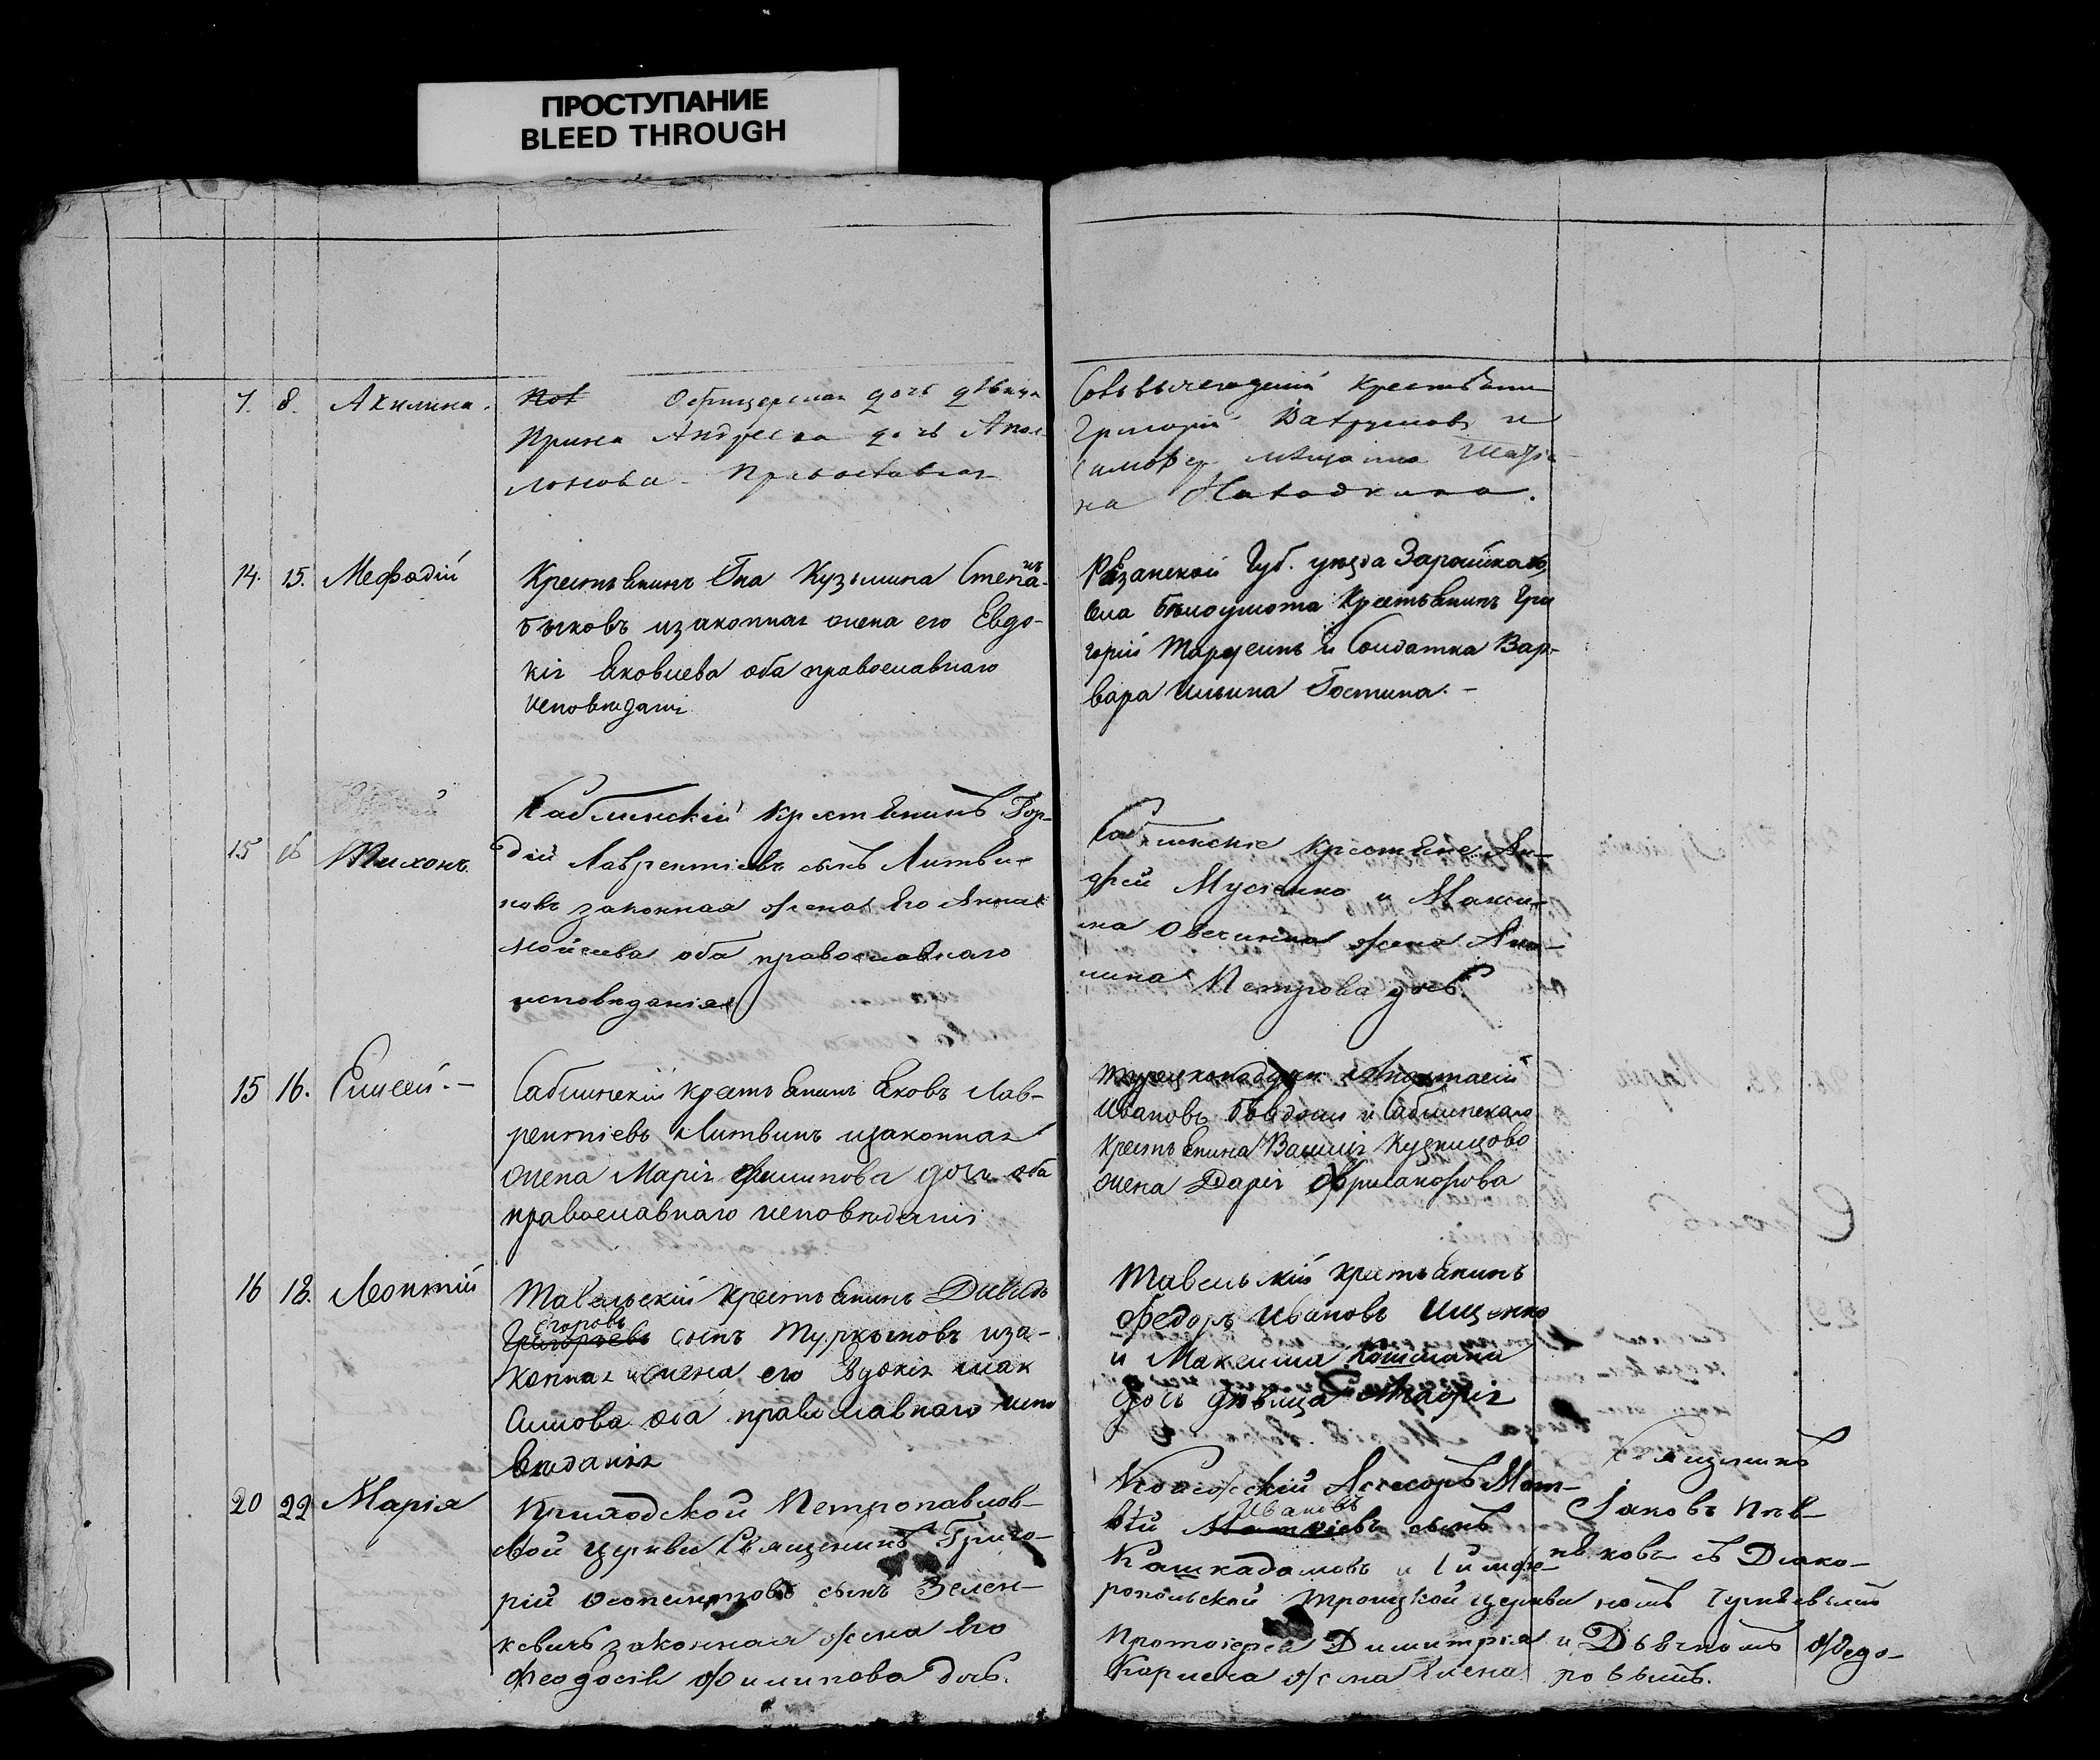 ПРОСТУПАНИЕ
BLEED THROUGH
7. 8. Акилина.
Офицерская дочь девица
Ирина Андреева дочь Апол-
лонова - Православная
крестьянин
Григорій и
на Находкина.
14. 15. Мефодій
Крестьянинъ Кузьмина
Бычковъ изаконная жена его Евдо-
кія Яковлева оба православнаго
исповѣданія
Рязанской Губ. уѣзда Зарайска
села Бѣлоумота Крестьянинъ Гри
горій и Солдатка Вар-
вара Ильина Гостина. -
15 16 Тихонъ.
Саблинскій крестьянинъ Гор-
дій Лаврентіевъ сынъ Литви-
новъ законная жена Его Анна
Мойсеева оба православнаго
исповѣданія
Саблинскіе крестьяне Ан-
дрей Мусіенко и Макси-
ма Овечкина жена Аку-
лина Петрова дочь
15 16. Елисей. -
Саблинскій крестьянинъ Яковъ Лав-
рентіевъ Литвинъ изаконная
жена Марія Филипова дочь оба
православнаго исповѣданія
Анастасій
Ивановъ и Саблинскаго
крестьянина Василія Кузнецова
жена Дарія
16 18. Леонтій
Тавельскій крестьянинъ Давидъ
Егоровъ
Григорьевъ сынъ Туркыновъ иза-
конная жена его Вдокія мак
симова оба православнаго испо
вѣданія
Тавельскій крестьянинъ
Федоръ Ивановъ Ищенко
и Максима Кошмана
дочь дѣвица
20 22 Марія
Приходской Петропавлов-
ской церкви Священникъ Григо-
рій сынъ Зелен-
кевичъ законная жена Его
Феодосія Филипова дочь.
Колежскій Асесоръ Мат-
Ивановъ
вѣй сынъ
Кашкадамовъ и Симфе-
ропольской троицкой церкви
Протоіерея Димитрія
жена Елена
Священникъ
Іаковъ Пѣв-
нѣковъ съ Діако-
номъ Гумѣевымъ
и Дьячкомъ Федо-
ровымъ.